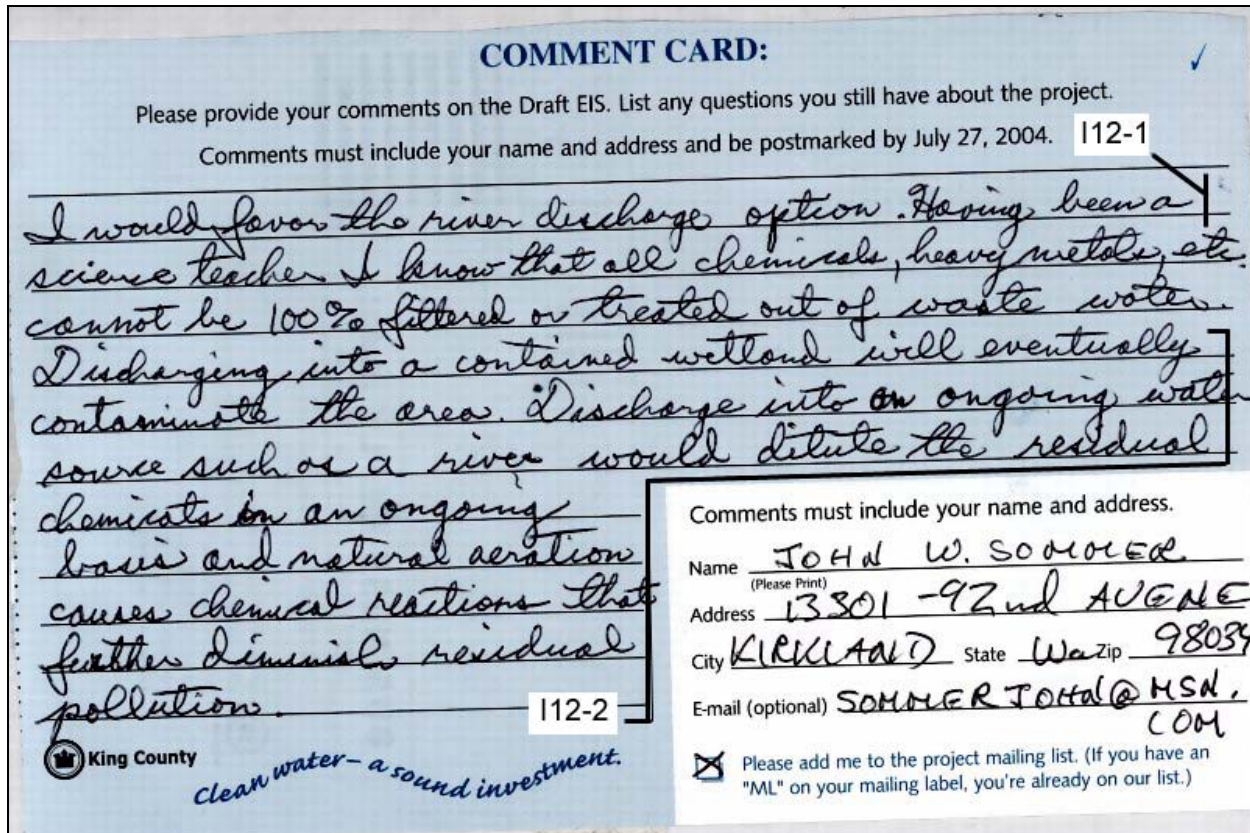 COMMENT CARD:
Please provide your comments on the Draft EIS. List any questions you still have about the project.
Comments must include your name and address and be postmarked by July 27, 2004.
I12-1
I would favor the river discharge option. Having been a
science teacher I know that all chemicals, heavy metals, etc.
cannot be 100% filtered or treated out of waste water.
Discharging into a contained wetland will eventually
contaminate the area. Discharge into an ongoing water
source such as a river would ditute the residual
chemicals in an ongoing
basis and natural aeration
causes chemical reactions that
further diminish residual
pollution.
I12-2
King County
Clean water – a sound investment.
Comments must include your name and address.
Name JOHN W. SOMMER
(Please Print)
Address 13301 -92nd AVENE
City KIRKLAND State Wa Zip 98034
E-mail (optional) SOMMERJOHN@MSN.
COM
Please add me to the project mailing list. (If you have an
"ML" on your mailing label, you're already on our list.)